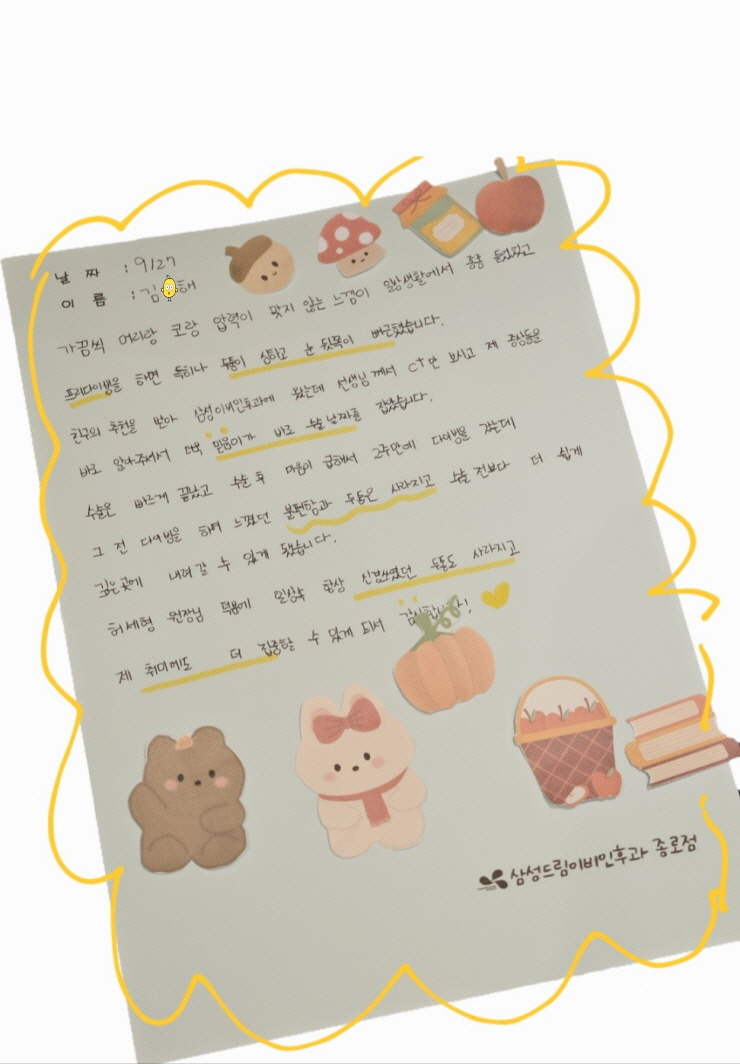 날 짜 : 9/27
이 름 : 김 해
가끔씩 머리랑 코랑 압력이 맞지 않는 느낌이 일상생활에서 종종 들었었고
프리다이빙을 하면 특히나 두통이 심하고 눈 뒷쪽이 뻐근했습니다.
친구의 추천을 받아 삼성이비인후과에 왔는데 선생님께서 CT만 보시고 제 증상들을
바로 알아주셔서 더욱 믿음이가 바로 수술날짜를 잡았습니다.
수술은 빠르게 끝났고 수술 후 마음이 급해서 2주만에 다이빙을 갔는데
그 전 다이빙을 하며 느꼈던 불편함과 두통은 사라지고 수술 전보다 더 쉽게
깊은곳에 내려갈 수 있게 됐습니다.
허세형 원장님 덕분에 일상속 항상 신경쓰였던 두통도 사라지고
제 취미에도 더 집중할 수 있게 되서 감사합니다!
삼성드림이비인후과 종로점